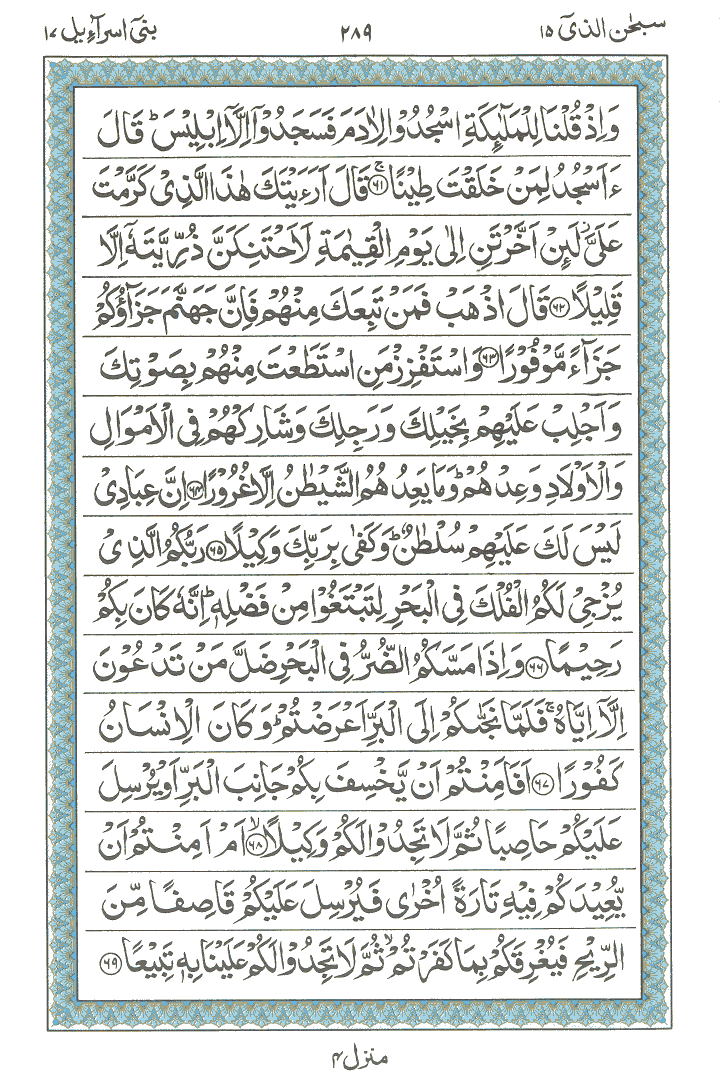 سبحٰن الذی ۱۵ ۲۸۹ بنی اسرآءیل ۱۷
وَاِذْ قُلْنَا لِلْمَلٰٓئِكَةِ اسْجُدُوْا لِاٰدَمَ فَسَجَدُوْۤا اِلَّاۤ اِبْلِیْسَ ؕ قَالَ
ءَاَسْجُدُ لِمَنْ خَلَقْتَ طِیْنًا ۚ﴿۶۱﴾ قَالَ اَرَءَیْتَكَ هٰذَا الَّذِیْ كَرَّمْتَ
عَلَیَّ ؗ لَئِنْ اَخَّرْتَنِ اِلٰی یَوْمِ الْقِیٰمَةِ لَاَحْتَنِكَنَّ ذُرِّیَّتَهٗۤ اِلَّا
قَلِیْلًا ﴿۶۲﴾ قَالَ اذْهَبْ فَمَنْ تَبِعَكَ مِنْهُمْ فَاِنَّ جَهَنَّمَ جَزَآؤُكُمْ
جَزَآءً مَّوْفُوْرًا ﴿۶۳﴾ وَاسْتَفْزِزْ مَنِ اسْتَطَعْتَ مِنْهُمْ بِصَوْتِكَ
وَاَجْلِبْ عَلَیْهِمْ بِخَیْلِكَ وَرَجِلِكَ وَشَارِكْهُمْ فِی الْاَمْوَالِ
وَالْاَوْلَادِ وَعِدْهُمْ ؕ وَمَا یَعِدُهُمُ الشَّیْطٰنُ اِلَّا غُرُوْرًا ﴿۶۴﴾ اِنَّ عِبَادِیْ
لَیْسَ لَكَ عَلَیْهِمْ سُلْطٰنٌ ؕ وَكَفٰی بِرَبِّكَ وَكِیْلًا ﴿۶۵﴾ رَبُّكُمُ الَّذِیْ
یُزْجِیْ لَكُمُ الْفُلْكَ فِی الْبَحْرِ لِتَبْتَغُوْا مِنْ فَضْلِهٖ ؕ اِنَّهٗ كَانَ بِكُمْ
رَحِیْمًا ﴿۶۶﴾ وَاِذَا مَسَّكُمُ الضُّرُّ فِی الْبَحْرِ ضَلَّ مَنْ تَدْعُوْنَ
اِلَّاۤ اِیَّاهُ ۚ فَلَمَّا نَجّٰىكُمْ اِلَی الْبَرِّ اَعْرَضْتُمْ ؕ وَكَانَ الْاِنْسَانُ
كَفُوْرًا ﴿۶۷﴾ اَفَاَمِنْتُمْ اَنْ یَّخْسِفَ بِكُمْ جَانِبَ الْبَرِّ اَوْ یُرْسِلَ
عَلَیْكُمْ حَاصِبًا ثُمَّ لَا تَجِدُوْا لَكُمْ وَكِیْلًا ۙ﴿۶۸﴾ اَمْ اَمِنْتُمْ اَنْ
یُّعِیْدَكُمْ فِیْهِ تَارَةً اُخْرٰی فَیُرْسِلَ عَلَیْكُمْ قَاصِفًا مِّنَ
الرِّیْحِ فَیُغْرِقَكُمْ بِمَا كَفَرْتُمْ ۙ ثُمَّ لَا تَجِدُوْا لَكُمْ عَلَیْنَا بِهٖ تَبِیْعًا ﴿۶۹﴾
منزل ۴